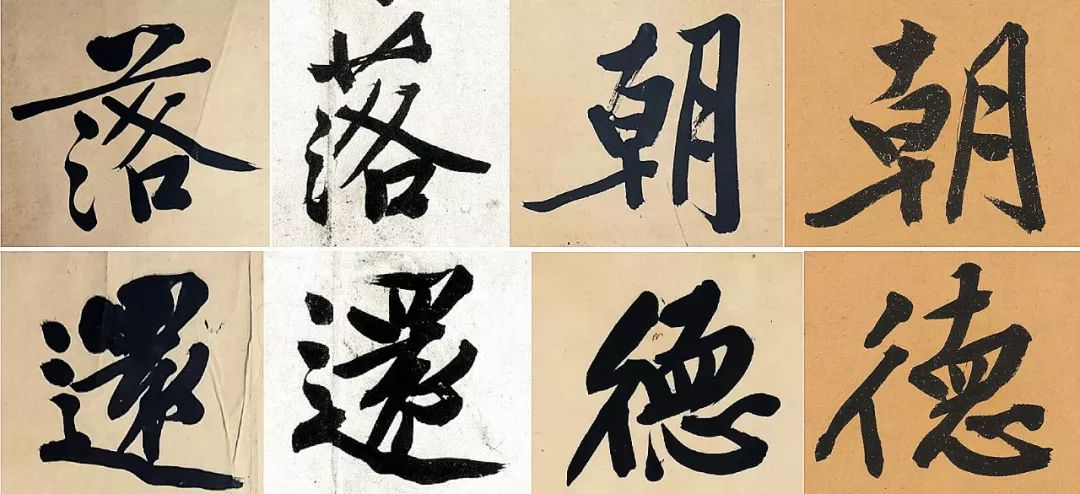 落落朝朝
還還德德